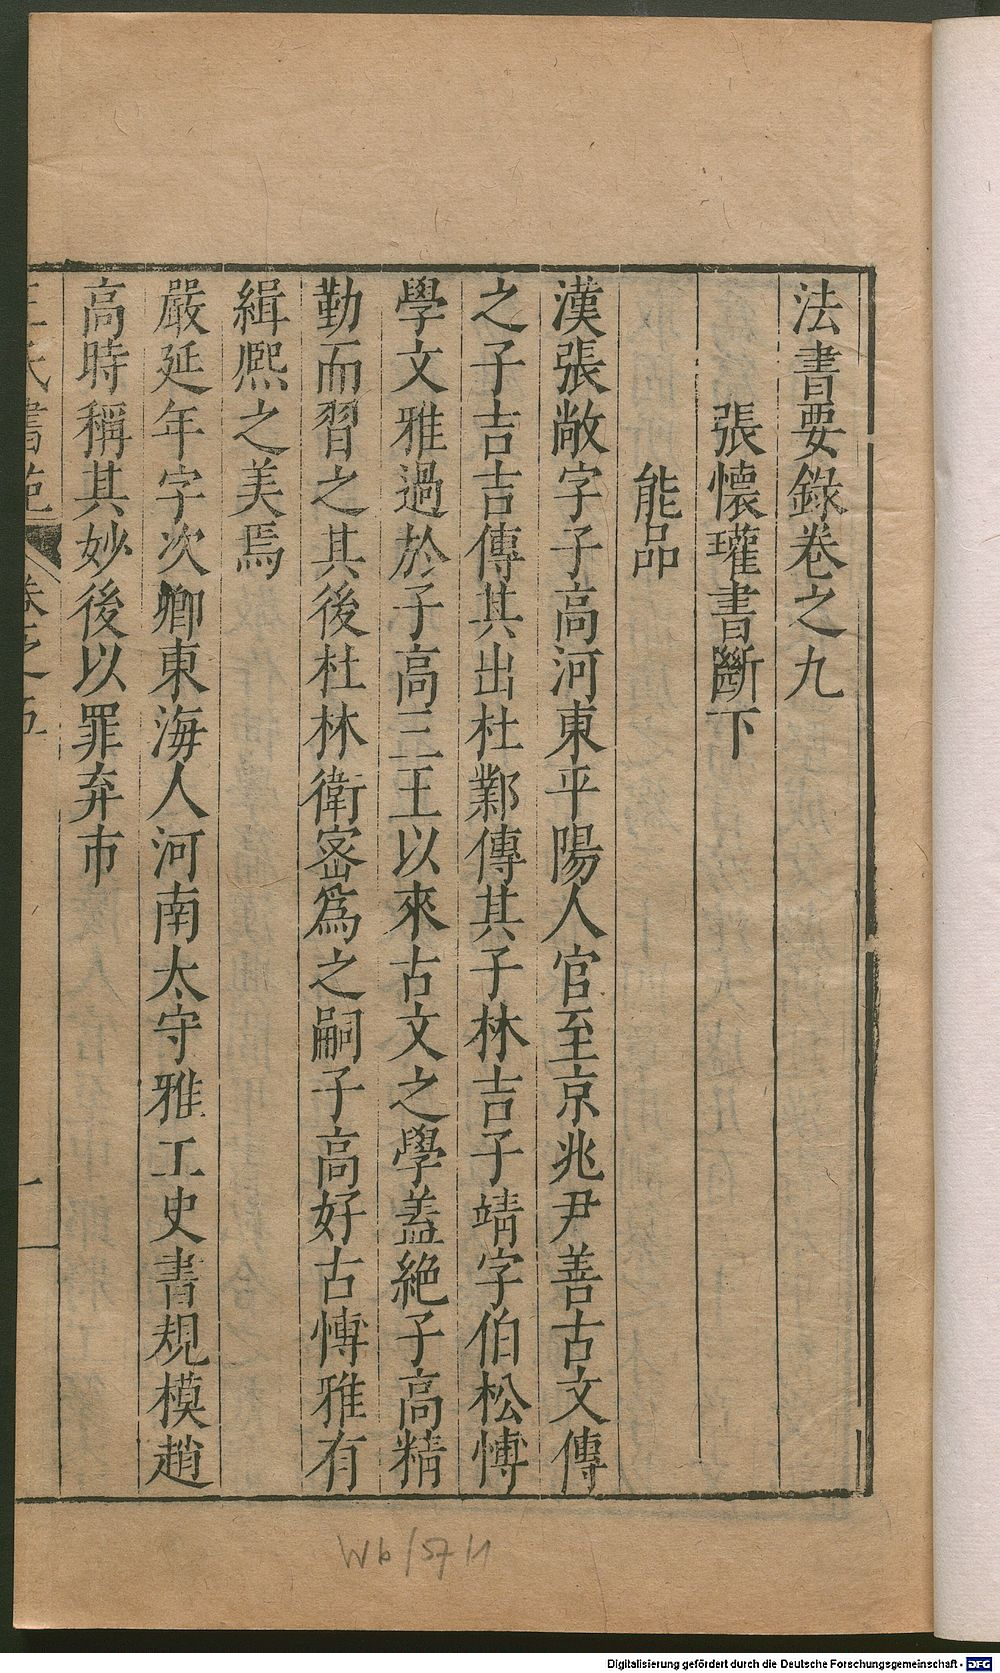 法書要錄卷之九
張懷瓘書斷下
能品
漢張敞字子高河東平陽人官至京兆尹善古文傳
之子吉吉傳其出杜鄴傳其子林吉子靖字伯松愽
學文雅過於子高三王以來古文之學蓋絶子高精
勤而習之其後杜林衛宻爲之嗣子高好古愽雅有
緝熈之美焉
嚴延年字次卿東海人河南太守雅工史書規模趙
高時稱其妙後以罪弃市
王氏書苑 卷之五 一
Wb/57/1
Digitalisierung gefördert durch die Deutsche Forschungsgemeinschaft - DFG